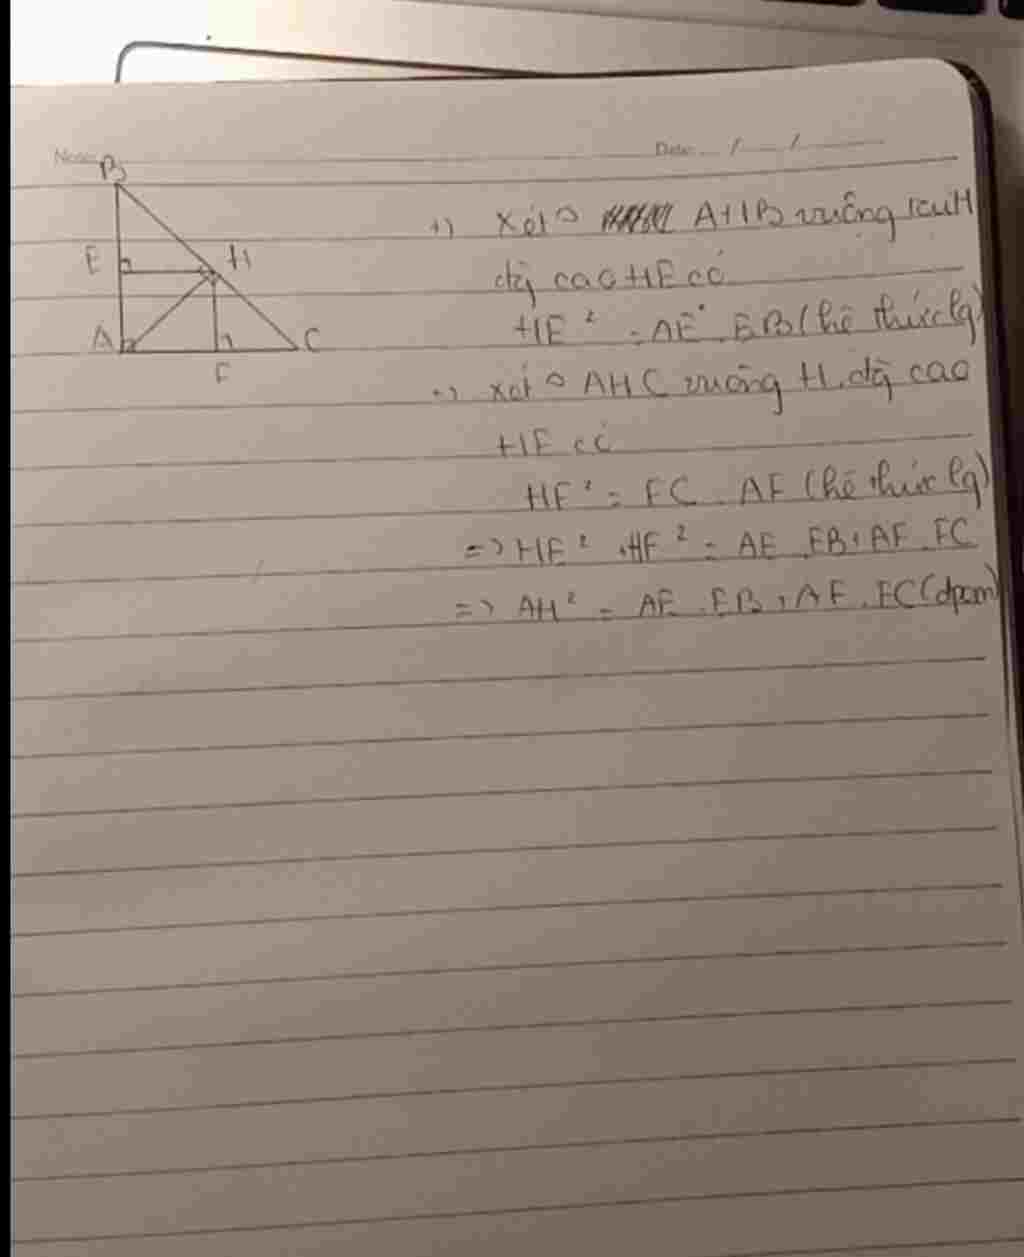 Date / /
B
E
H
A
C
F
+) Xét △ AHB vuông tại H
đg cao HE có
HE² = AE . EB (hệ thức lg)
+) Xét △ AHC vuông H, đg cao
HF có
HF² = FC . AF (hệ thức lg)
=> HE² + HF² = AE . EB + AF . FC
=> AH² = AE . EB + AF . FC (đpcm)